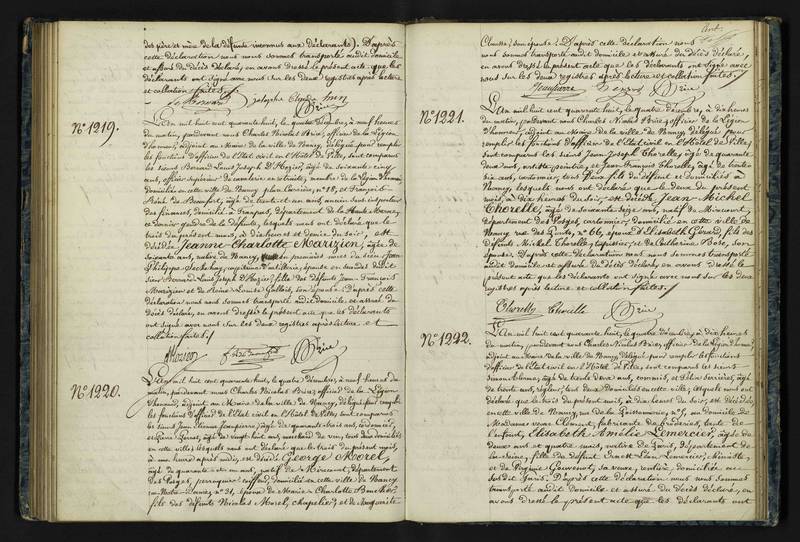 des père et mère de la défunte inconnus aux déclarants). D'après
cette déclaration nous nous sommes transporté audit domicile
et assuré du décès déclaré, en avons dressé le présent acte que les
déclarants ont signé avec nous sur les deux registres après lecture
et collation faites.
Brice
N.º 1219.
L'An mil huit cent quarante huit, le quatre Décembre, à neuf heures
du matin, pardevant nous Charles Nicolas Brice, officier de la Légion
d'honneur, adjoint au Maire de la ville de Nancy, délégué pour remplir
les fonctions d'officier de l'Etat civil en l'Hôtel de Ville, sont comparus
les sieurs Bernard Louis Joseph D'Hozier, âgé de soixante cinq
ans, officier supérieur de cavalerie en retraite, membre de la Légion d'honneur
domicilié en cette ville de Nancy place Carrière, n.º 18, et François
de Beaufort, âgé de trente et un ans, ancien sous inspecteur
des finances, domicilié à département de la Haute Marne,
ce dernier gendre de la défunte, lesquels nous ont déclaré que le
trois du présent mois, à dix heures et demie du soir, est
décédée Jeanne Charlotte Marizien, âgée de
soixante ans, native de Nancy, en premières noces du sieur Jean
Philippe capitaine d'artillerie, épouse en secondes dudit
sieur Bernard Louis Joseph D'Hozier, fille des défunts Jean François
Marizien et de Reine Louise Gallois, son épouse. D'après cette
déclaration nous nous sommes transporté audit domicile et assuré du
décès déclaré, en avons dressé le présent acte que les déclarants
ont signé avec nous sur les deux registres après lecture et
collation faites.
D'Hozier Brice
N.º 1220.
L'An mil huit cent quarante huit, le quatre Décembre, à neuf heures du
matin, pardevant nous Charles Nicolas Brice, officier de la Légion
d'honneur, adjoint au Maire de la ville de Nancy, délégué pour remplir
les fonctions d'officier de l'Etat civil en l'Hôtel de Ville, sont comparus
les sieurs Jean Etienne Jeanpierre, âgé de quarante trois ans,
et Pierre âgé de vingt huit ans, marchand de vin, tous deux domiciliés
en cette ville, lesquels nous ont déclaré que le trois du présent mois,
à une heure après midi, est décédé George Morel,
âgé de quarante et un ans, natif de Mirecourt, département
des Vosges, perruquier coiffeur, domicilié en cette ville de Nancy
n.º 31, époux de Marie Charlotte
fils des défunts Nicolas Morel, chapelier, et de Marguerite
son épouse. D'après cette déclaration nous
nous sommes transporté audit domicile et assuré du décès déclaré,
en avons dressé le présent acte que les déclarants ont signé avec
nous sur les deux registres après lecture et collation faites.
Jeanpierre Brice
N.º 1221.
L'An mil huit cent quarante huit, le quatre Décembre, à dix heures
du matin, pardevant nous Charles Nicolas Brice, officier de la Légion
d'honneur, adjoint au Maire de la ville de Nancy, délégué pour
remplir les fonctions d'officier de l'Etat civil en l'Hôtel de Ville,
sont comparus les sieurs Jean Joseph Thorelle, âgé de quarante
deux ans, artiste peintre, et Jean François Thorelle, âgé de trente
six ans, cartonnier, tous deux fils du défunt et domiciliés à
Nancy, lesquels nous ont déclaré que le deux du présent
mois, à dix heures du soir, est décédé Jean Michel
Thorelle, âgé de soixante seize ans, natif de Mirecourt,
département des Vosges, cartonnier, domicilié en cette ville de
Nancy rue des Ponts, n.º 66, époux d'Elisabeth Gérard, fils des
défunts Michel Thorelle, tapissier, et de Catherine Bose, son
épouse. D'après cette déclaration nous nous sommes transporté
audit domicile et assuré du décès déclaré, en avons dressé le
présent acte que les déclarants ont signé avec nous sur les deux
registres après lecture et collation faites.
Thorelle Thorelle Brice
N.º 1222.
L'An mil huit cent quarante huit, le quatre Décembre, à dix heures
du matin, pardevant nous Charles Nicolas Brice, officier de la Légion d'honneur,
adjoint au Maire de la ville de Nancy, délégué pour remplir les fonctions
d'officier de l'Etat civil en l'Hôtel de Ville, sont comparus les sieurs
âgé de trente deux ans, commis, et âgé
de trente ans, régleur, tous deux domiciliés en cette ville, lesquels nous ont
déclaré que le trois du présent mois, à dix heures du soir, est décédée
en cette ville de Nancy, rue de la Poissonnerie, n.º 5, au domicile de
Madame veuve Clément, fabricante de broderies, tante de
l'enfant, Elisabeth Amélie Lemercier, âgée de
deux ans et quatre mois, native de Paris, département de
la Seine, fille du défunt Lemercier, chimiste,
et de Virginie sa veuve, rentière, domiciliée au
susdit Paris. D'après cette déclaration nous nous sommes
transporté audit domicile et assuré du décès déclaré, en
avons dressé le présent acte que les déclarants ont